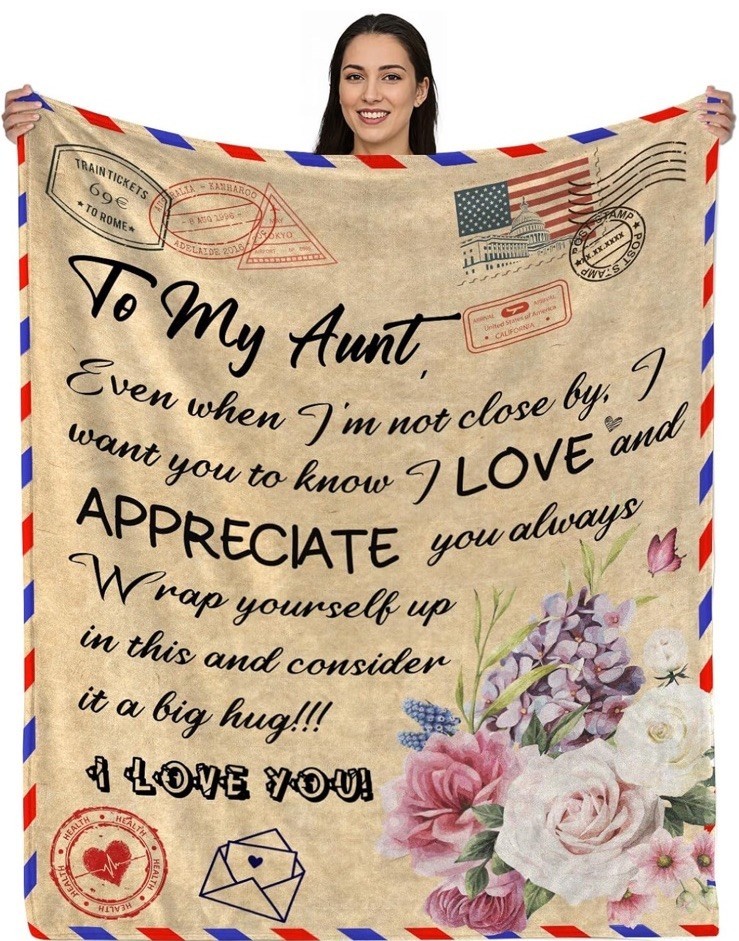 TRAIN TICKETS
69€
★ TO ROME ★
RALIA - KANHAROO
- 8 AUG 1996 -
ADELAIDE 2016
TOKYO
POST STAMP
XX.XX.XXXX
POST STAMP
United States of America
• CALIFORNIA •
To My Aunt,
Even when I'm not close by, I
want you to know I LOVE and
APPRECIATE you always
Wrap yourself up
in this and consider
it a big hug!!!
I LOVE YOU!
HEALTH • HEALTH • HEALTH • HEALTH • HEALTH